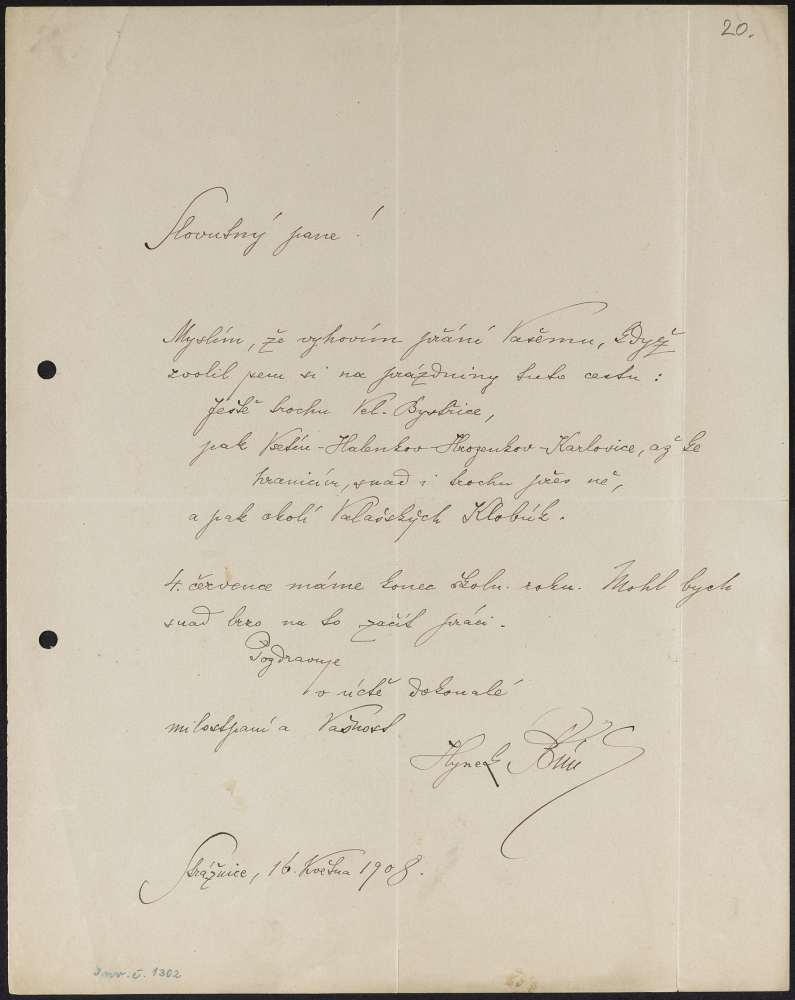 20.
Slovutný pane!
Myslím, že vyhovím přání Vašemu, když
zvolil jsem si na prázdniny tuto cestu:
Ještě trochu Vel. Bystřice,
pak Vsetín-Halenkov-Hrozenkov-Karlovice, až ke
hranicím, snad i trochu přes ně,
a pak okolí Valašských Klobúk.
4. července máme konec školn. roku. Mohl bych
snad brzo na to začít práci.
Pozdravuje
v úctě dokonalé
milostpaní a Vašnost
Hynek Bím
Strážnice, 16. Května 1908.
Inv. č. 1302